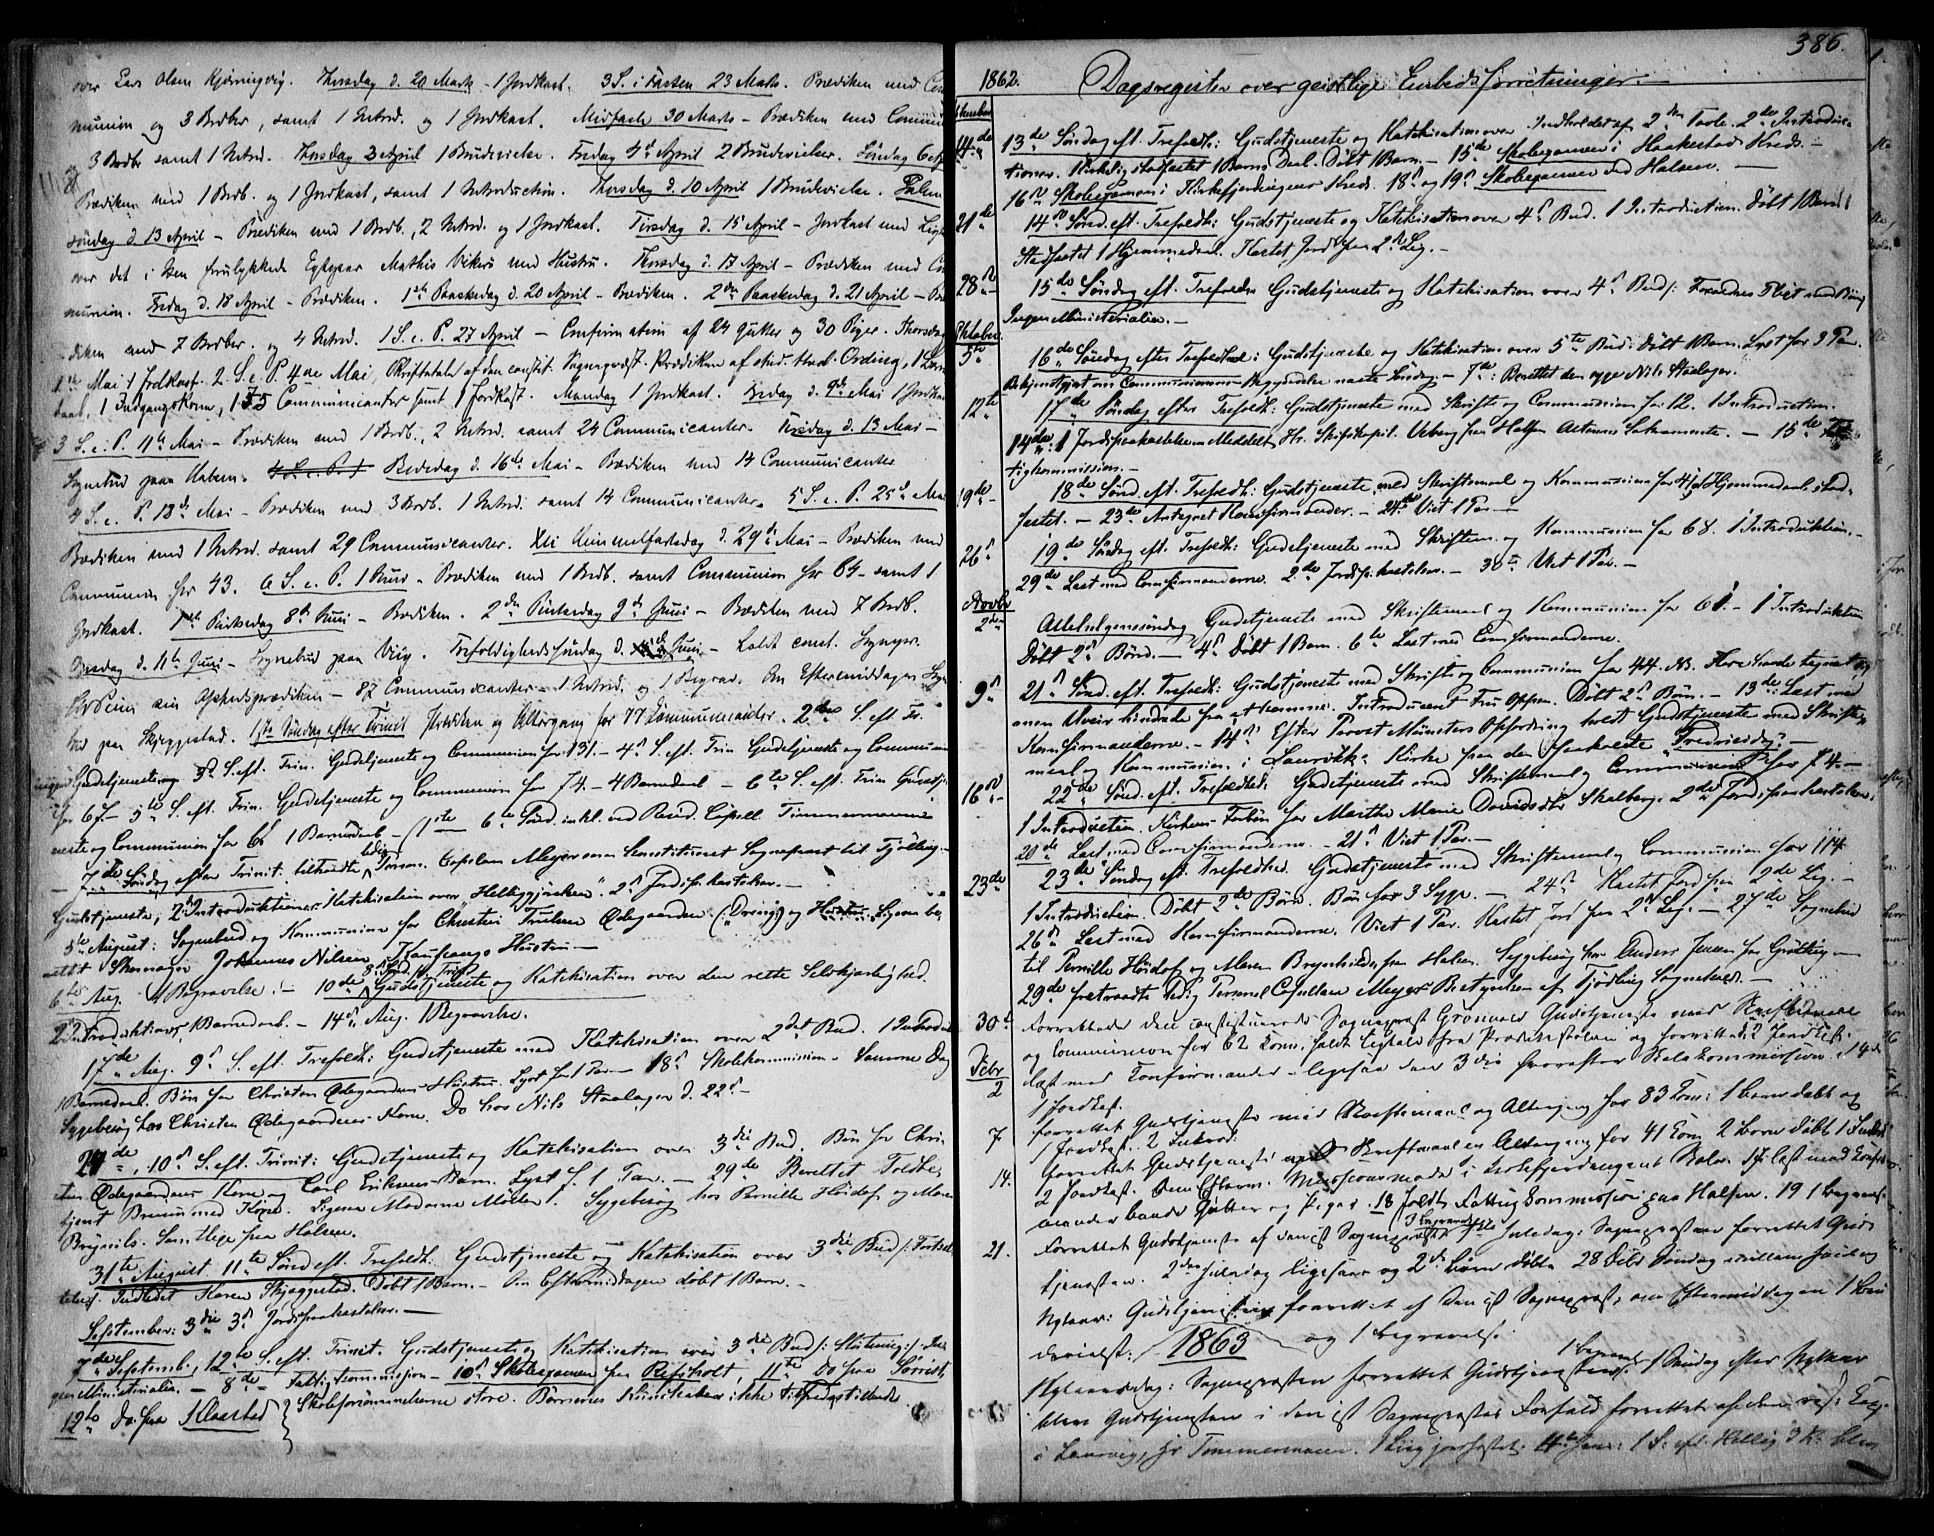 over Lars Olsen Kjørningvig. Thorsdag d. 20 Marts - 1 Jordkast. 3 S. i Fasten 23 Marts. Prædiken med Com
munion og 3 Brdber, samt 1 Introd. og 1 Jordkast. Midfaste 30 Marts - Prædiken med Commun
3 Brdb. samt 1 Introd. Thorsdag 3 April 1 Brudevielse. Fredag 4de April 2 Brudevielser. Søndag 6
Prædiken med 1 Brdb. og 1 Jordkast, samt 1 Introduction. Thorsdag d. 10 April 1 Brudevielse. Palme
søndag d. 13 April - Prædiken med 1 Brdb., 2 Introd. og 1 Jordkast. Tirsdag d. 15 April - Jordkast med Lig
over det i Søen forulykkede Egtepar Mathis Vikers med Hustru. Thorsdag d. 17 April - Prædiken med Com
munion. Fredag d. 18 April - Prædiken. 1ste Paaskedag d. 20 April - Prædiken. 2den Paaskedag d. 21 April - Præ
diken med 7 Brdber. og 4 Introd. 1 S. e. P. 27 April - Confirmation af 24 Gutter og 30 Piger. Thorsdag
1ste Mai 1 Jordkast. 2. S. e. P. 4de Mai, Skriftetale af den constit. Sognepræst. Prædiken af stud. theol. Ording, 1 Barne
daab, 1 Indgangskone, 155 Communicanter samt 1 Jordkast. Mandag 1 Jordkast. Fredag d. 9de Mai 1 Jordkast
3 S. e. P. 11te Mai - Prædiken med 1 Brdb., 2 Introd. samt 24 Communicanter. Tirsdag d. 13 Mai -
Sognebud paa Halsen. 4 S. e. P. 1 Bededag d. 16de Mai - Prædiken med 14 Communicanter
4 S. e. P. 18de Mai - Prædiken med 3 Brdb. 1 Introd. samt 14 Communicanter. 5 S. e. P. 25de Mai
Prædiken med 1 Introd. samt 29 Communicanter. Xti Himmelfartsdag d. 29de Mai - Prædiken med
Communion for 43. 6 S. e. P. 1 Juni - Prædiken med 1 Brdb. samt Communion for 64 - samt 1
Jordkast. 1ste Pintsedag 8de Juni - Prædiken. 2den Pintsedag 9de Juni - Prædiken med 7 Brdb.
Onsdag d. 11te Juni - Sognebud paa Vig. Trefoldighedssøndag d. Juni - holdt const. Sognepr.
sin Afskedsprædiken - 82 Communicanter - 1 Introd. og 1 Begrav. Om Eftermiddagen Sogne
bud paa Skjeggestad. 1ste Søndag efter Trinit. Prædiken og Altergang for 77 Communicanter. 2den S. eft. Tr.
ingen Gudstjeneste, 3de S. eft. Trin. Gudstjeneste og Communion for 131. - 4de S. eft. Trin Gudstjeneste og Communion
for 67. - 5te S. eft. Trin. Gudstjeneste og Communion for 74. - 4 Barnedaab - 6te S. eft. Trin Gudstje
neste og Communion for 66 1 Barnedaab - / 1ste - 6te Sønd. inkl. ved Resid. Capell. Timmermann
- 7de Søndag efter Trinit. tiltraadte Person. Capellan Meyer som Constitueret Sognepræst til Tjølling. -
Gudstjeneste, 2de Introduktioner. Katekisation over "Helliggjørelsen". 2de Jordspaakastelser. -
5te August: Sognebud og Kommunion for Christen Trulsen Ødegaarden (: Døvig:) og Hustru. Ligesaa be
rettet Skomager Johannes Nilsen Kaupangs Hustru -
6te Aug. 1 Begravelse. - 10de 8 Sønd. ft. Tref. Gudstjeneste og Katekisation over den rette Selvkjærlighed.
2 Introduktioner, 1 Barnedaab. - 14de Aug. 1 Begravelse.
17de Aug. 9de S. eft. Trefoldh: Gudstjeneste med Katekisation over 2det Bud. 1 Introd.
1 Barnedaab. Bøn for Christen Ødegaardens Hustru. Lyst for 1 Par. - 18de Skolekommission. - Samme Dag
Sygebesøg hos Christen Ødegaardens Kone. Do hos Nils Staalager d. 22de. -
24de, 10de S. eft. Trinit: Gudstjeneste og Katekisation over 3die Bud. Bøn for Chri-
sten Ødegaardens Kone og Carl Eriksens Barn. Lyst f. 1 Par. - 29de Berettet Toldbe-
tjent Bruun med Kone. Ligesaa Madame Møller. Sygebesøg hos Pernille Høidof og Maren
Brynils. Samtlige paa Halsen.
31te August 11te Sønd eft. Trefoldh. Gudstjeneste og Katekisation over 3die Bud /: Fortsæt-
telse:/. Indledet Karen Skjæggestad. Døbt 1 Barn. - Om Eftermidagen døbt 1 Barn. -
September: 3die 3de Jordspaakastelser. -
7de Septemb., 12te S. eft. Trinit. Gudstjeneste og Katekisation over 3die Bud /: Slutning :/. In-
gen Ministerialia. - 8de - Fattigkommission - 10de Skoleexamen paa Refsholt, 11te Do paa Sørrist,
12te Do. paa Klaastad } Skoleforsømmelserne store. Børnenes Kundskaber ikke tilfredsstillende.
386.
1862. Dagsregister over geistlige Embedsforretninger. -
Septembr.
14de 13de Søndag eft. Trefoldh: Gudstjeneste og Katekisation over Indholdet af 2den Tavle. 2de Introduc-
tioner. Kirkelig stadfæstet 1 Barns Daab. Døbt 1 Barn. - 15de Skoleexamen i Haakestad Kreds. -
16de Skoleexamen i Kirkefjerdingens Kreds. 18de og 19de Skoleexamen ved Halsen. -
21de 14de Sønd. eft. Trefoldh: Gudstjeneste og Katekisation over 4de Bud. 1 Introduction. Døbt 1 Barn.
Stadfæstet 1 Hjemmedaab. Kastet Jord paa 2de Lig. -
28de 15de Søndag eft. Trefoldh. Gudstjeneste og Katekisation over 4de Bud /: Forældres Pligt mod Børn.
Ingen Ministerialia. -
Oktober.
5te 16de Søndag efter Trefoldhed: Gudstjeneste og Katekisation over 5te Bud. Døbt 1 Barn. Lyst for 3 Par.
Bekjentgjort om Communionens Begyndelse næste Søndag. - 7de: Berettet den syge Nils Staalager.
12te 17de Søndag efter Trefoldh: Gudstjeneste med Skrifte og Communion for 12. 1 Introduction.
14de: 1 Jordspaakastelse. Meddelt Hr. Skibskapt. Veberg paa Halsen Alterens Sakramente. - 15de Fat-
tigkommission. -
19de 18de Sønd. eft. Trefoldh: Gudstjeneste med Skriftemaal og Kommunion for 41. 1 Hjemmedaab stad-
fæstet. - 23de Antegnet Konfirmander. - 24de Viet 1 Par. -
26de 19de Søndag eft. Trefoldh: Gudstjeneste med Skriftem. og Kommunion for 68. 1 Introduktion. -
29de Læst med Confirmanderne. 2de Jordspaakastelser. - 30te Viet 1 Par. -
Novbr
2den Allehelgenssøndag Gudstjeneste med Skriftemaal og Kommunion for 61. - 1 Introduktion
Døbt 2de Børn. - 4de Døbt 1 Barn. 6te Læst med Confirmanderne.
9de 21de Sønd. eft. Trefoldh: Gudstjeneste med Skrifte og Communion for 44. NB. Flere havde tegnet sig,
men Uveir hindrede fra at komme. Introduceret Fru Oppen. Døbt 2de Børn. - 13de: Læst med
Konfirmanderne. - 14de Efter Provst Münsters Opfordring holdt Gudstjeneste med Skrifte-
maal og Kommunion i Laurviks Kirke paa den saakaldte Fredericiadag. -
16de 22de Sønd. eft. Trefoldhed: Gudstjeneste med Skriftemaal og Communion for 74. -
1 Introduction. Kirkens Forbøn for Marthe Marie Davidsdtr Skalberg. 2de Jordspaakastelser.
20de Læst med Confirmanderne. - 21de Viet 1 Par. -
23de 23de Søndag eft. Trefoldhed. Gudstjeneste med Skriftemaal og Communion for 114
1 Introduction. Døbt 2de Børn. Bøn for 3 Syge. - 24de Kastet Jord paa 2de Lig. -
26de Læst med Konfirmanderne. Viet 1 Par. Kastet Jord paa 2de Lig. - 27de Sognebud
til Pernille Høidof og Maren Brynhilds paa Halsen. Sygebesøg hos Anders Jensen paa Grøtting. -
29de fratraadte ledig Personel Capellan Meyer Bestyrelsen af Tjødling Sognekald. -
30te Forrettede den constituerede Sognepræst Grønvold Gudstjeneste med Skriftemaal
og Communion for 62 Kom: holdt Ligtale fra Prædikestolen og forrettede 2 Jordkast.
Debr
2 Læst med Konfirmander - ligesaa den 3die hvorefter Valgkommission. d 4de
1 Jordkast.
7. Forrettet Gudstjeneste med Skriftemaal og Altergang for 83 Kom: 1 Barn døbt og
1 Jordkast. 2 Introd:
14. Forrettet Gudstjeneste med Skriftemaal og Altergang for 41 Kom. 2 Børn døbt 1 Introd.
2 Jordkast. Om Efterm. Missionsmøde i Kirkefjerdingens Skole. 17 læst med Konfir-
mander baade Gutter og Piger. 18 Holdt Fattigkommission paa Halsen. 19 1 Begravelse.
21. Forrettet Gudstjeneste af den cst Sognepræst 1 Begravelse. 1ste Juledag: Sognepræsten forrettet Guds
tjenesten. 2den Juledag ligesaa og 2de Børn døbt. 28 Debr Søndag mellem Juul og
Nytaar: Gudstjeneste forrettet af den cst Sognepræst, om Eftermiddagen 1 Bru
devielse: og 1 Begravelse.
1863
Nytaarsdag: Sognepræsten forrettet Gudstjenesten. 1 Begravelse. 1 Søndag efter Nytaar
blev Gudstjenesten i den cst Sognepræstes Forfald forrettet af den res: Cap.
i Laurvig, Hr Timmermann. 1 Liig jordfæstet. 11te Janr: 1 S. eft. Hellig 3 K. blev